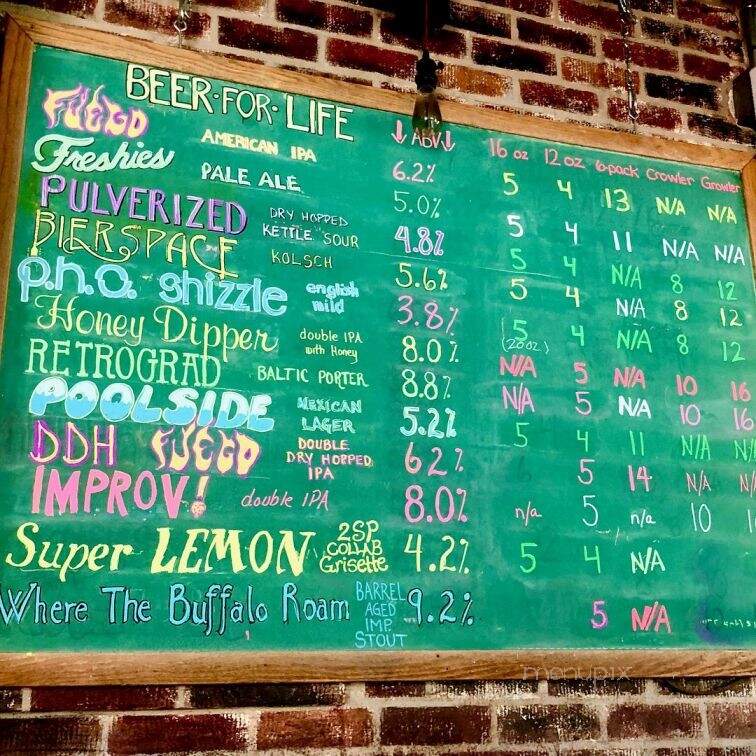 BEER·FOR·LIFE
↓ABV↓ 16 oz 12 oz 6-pack Crowler Growler
FUEGO AMERICAN IPA 6.2% 5 4 13 N/A N/A
Freshies PALE ALE 5.0% 5 4 11 N/A N/A
PULVERIZED DRY HOPPED KETTLE SOUR 4.8% 5 4 N/A 8 12
BIERSPACE KOLSCH 5.6% 5 4 N/A 8 12
p.h.o. shizzle english mild 3.8% 5 (20oz) 4 N/A 8 12
Honey Dipper double IPA with Honey 8.0% N/A 5 N/A 10 16
RETROGRAD BALTIC PORTER 8.8% N/A 5 N/A 10 16
POOLSIDE MEXICAN LAGER 5.2% 5 4 11 N/A N/A
DDH FUEGO DOUBLE DRY HOPPED IPA 6.2% 5 14 N/A
IMPROV! double IPA 8.0% n/a 5 n/a 10
Super LEMON 2SP COLLAB Grisette 4.2% 5 4 N/A
Where The Buffalo Roam BARREL AGED IMP. STOUT 9.2% 5 N/A
menupix